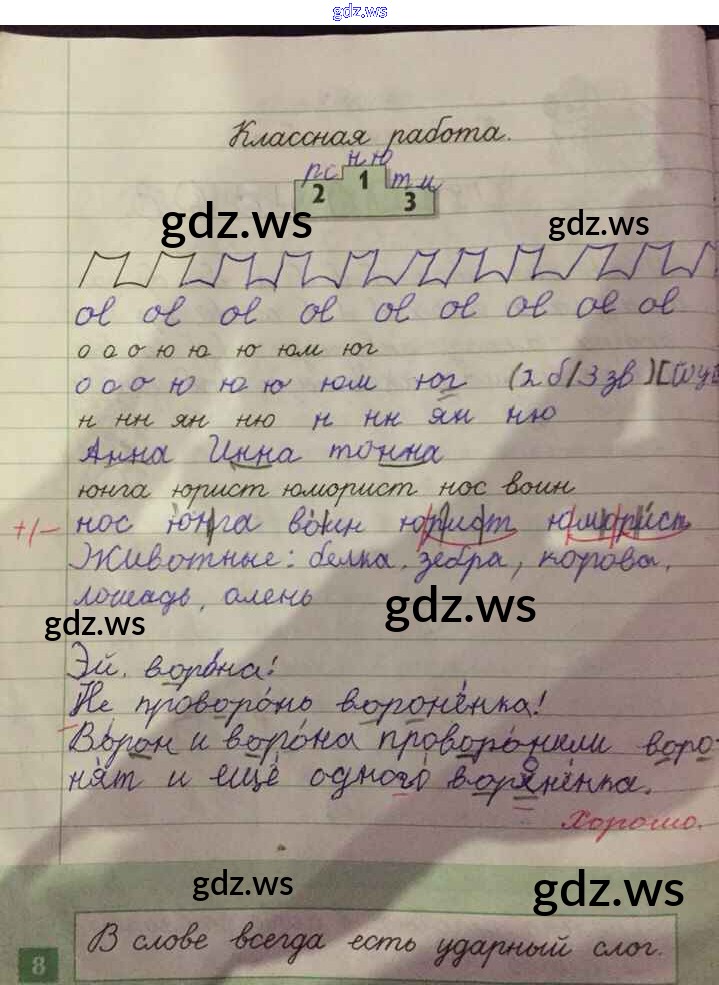 gdz.ws
Классная работа.
рс ню ти
2 1 3
gdz.ws gdz.ws
ов ов ов ов ов ов ов ов ов
о о о ю ю ю юм юг
о о о ю ю ю юм юг (2 б/3 зв)
н нн ян ню н нн ян ню
Анна Инна тонна
юнга юрист юморист нос воин
+/- нос юнга воин юрист юморист
Животные: белка, зебра, корова,
лошадь, олень
gdz.ws gdz.ws
Эй, ворона!
Не проворонь воронёнка!
Ворон и ворона проворонили воро-
нят и ещё одного воронёнка.
Хорошо.
gdz.ws gdz.ws
В слове всегда есть ударный слог.
8